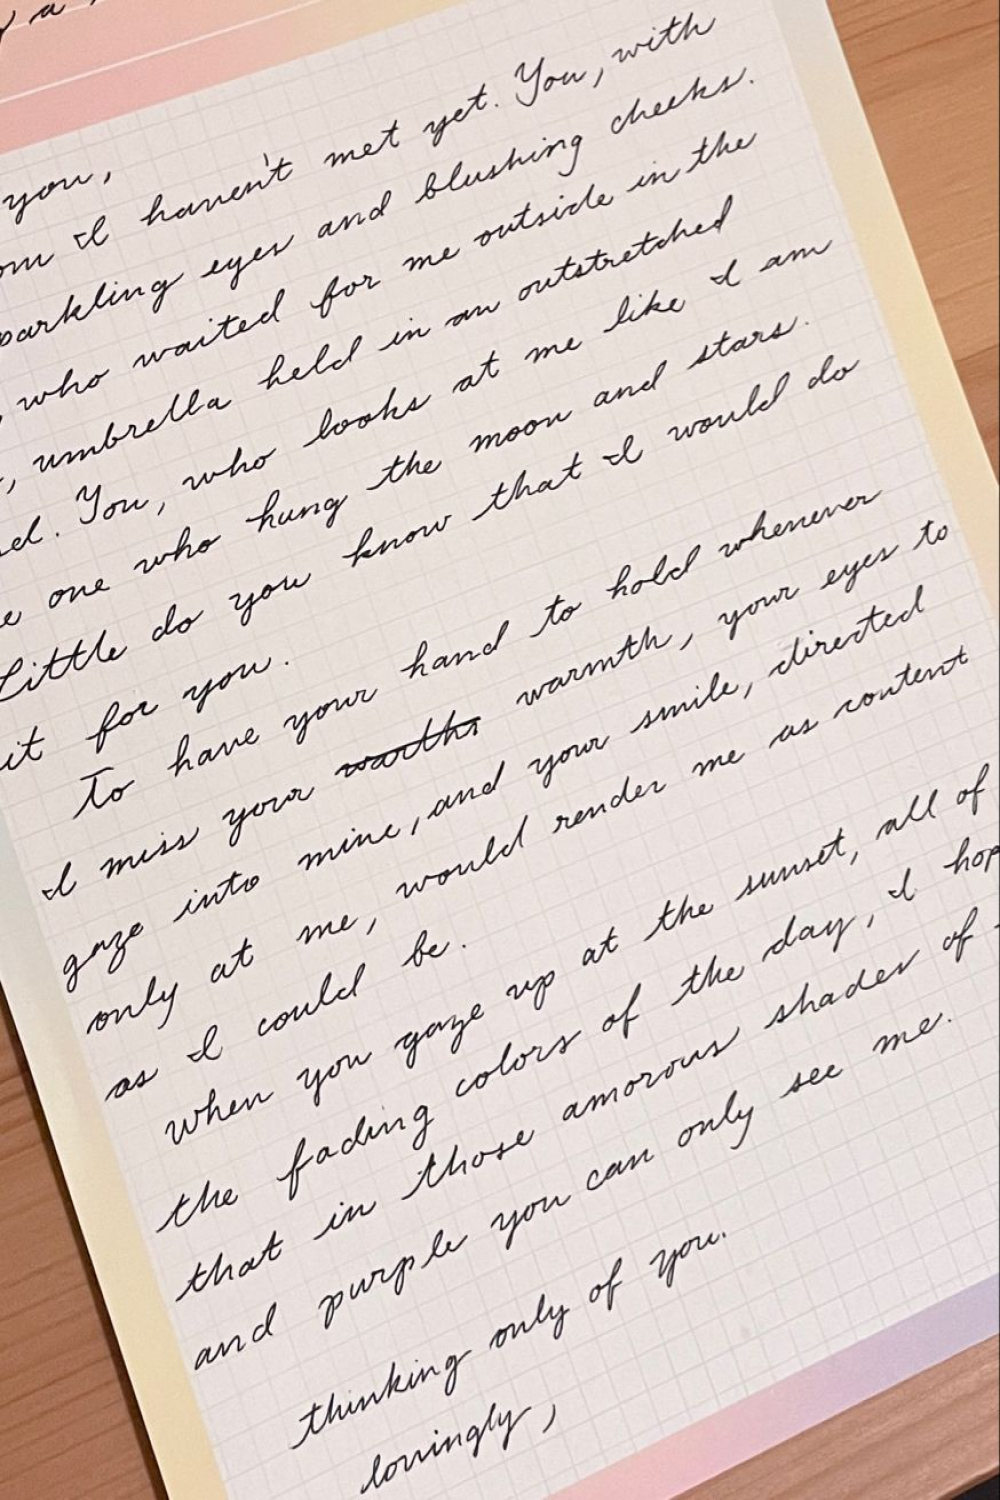 you,
I haven't met yet. You, with
sparkling eyes and blushing cheeks.
, who waited for me outside in the
, umbrella held in an outstretched
. You, who looks at me like I am
one who hung the moon and stars.
Little do you know that I would do
it for you.
To have your hand to hold whenever
I miss your warmth, your eyes to
gaze into mine, and your smile, directed
only at me, would render me as content
as I could be.
When you gaze up at the sunset, all of
the fading colors of the day, I
that in those amorous shades of
and purple you can only see me.
thinking only of you.
lovingly,